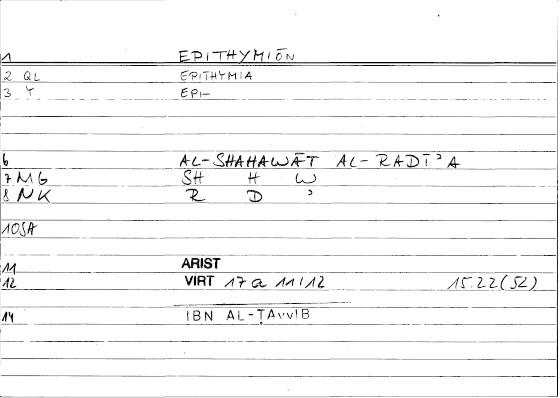 1 EPITHYMIŌN
2 QL EPITHYMIA
3 Y EPI-
6 AL-SHAHAWĀT AL-RADĪʾA
7 MG SH H W
8 NK R D ʾ
10 SA
11 ARIST
12 VIRT 17 a 11/12 15.22(52)
14 IBN AL-ṬAYYIB